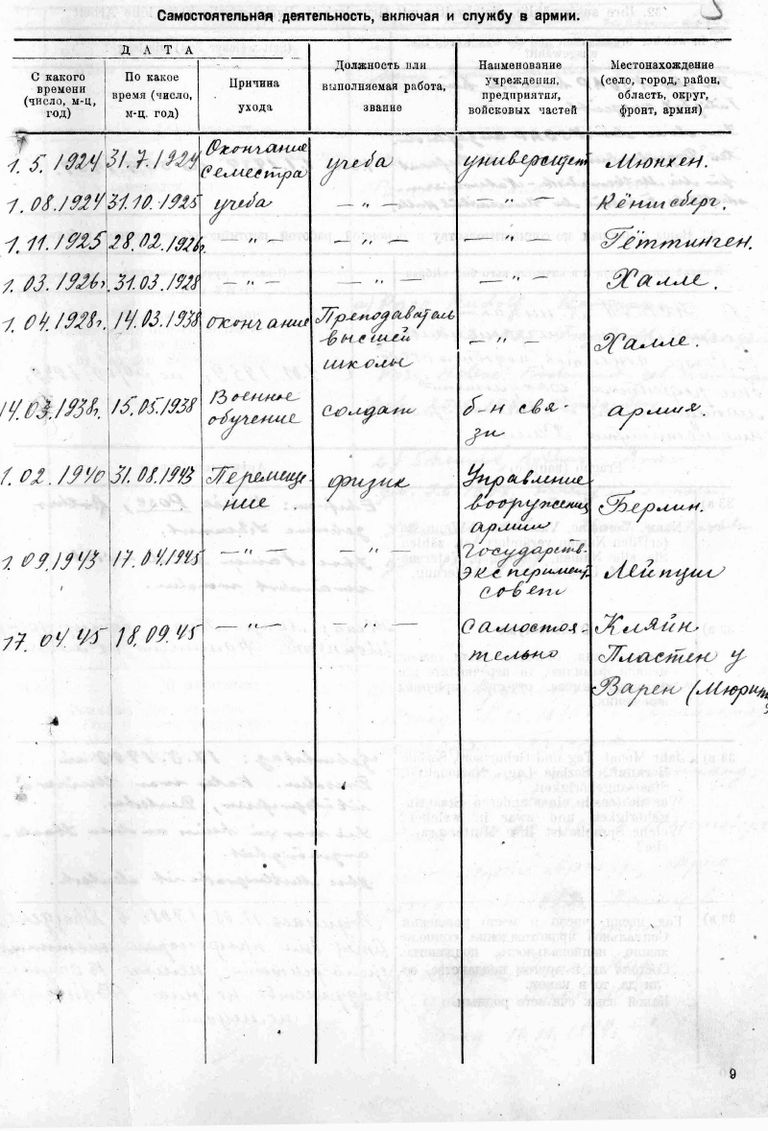 Самостоятельная деятельность, включая и службу в армии.
ДАТА
С какого времени (число, м-ц, год)
По какое время (число, м-ц. год)
Причина ухода
Должность или выполняемая работа, звание
Наименование учреждения, предприятия, войсковых частей
Местонахождение (село, город, район, область, округ, фронт, армия)
1. 5. 1924 31. 7. 1924 Окончание семестра учеба университет Мюнхен.
1. 08. 1924 31. 10. 1925 учеба — " — — " — Кёнигсберг.
1. 11. 1925 28. 02. 1926г. — " — — " — Гёттинген.
1. 03. 1926г. 31. 03. 1928 — " — — " — Халле.
1. 04. 1928г. 14. 03. 1938 окончание Преподаватель высшей школы — " — Халле.
14. 03. 1938г. 15. 05. 1938 Военное обучение солдат б-н свя-зи армия.
1. 02. 1940 31. 08. 1943 Перемеще-ние физик Управление вооружения армии Берлин.
1. 09. 1943 17. 04. 1945 — " — — " — Государств. эксперимент. совет Лейпциг
17. 04. 45 18. 09. 45 — " — — " — самостоя-тельно Кляйн Пластен у Варен (Мюритз
9